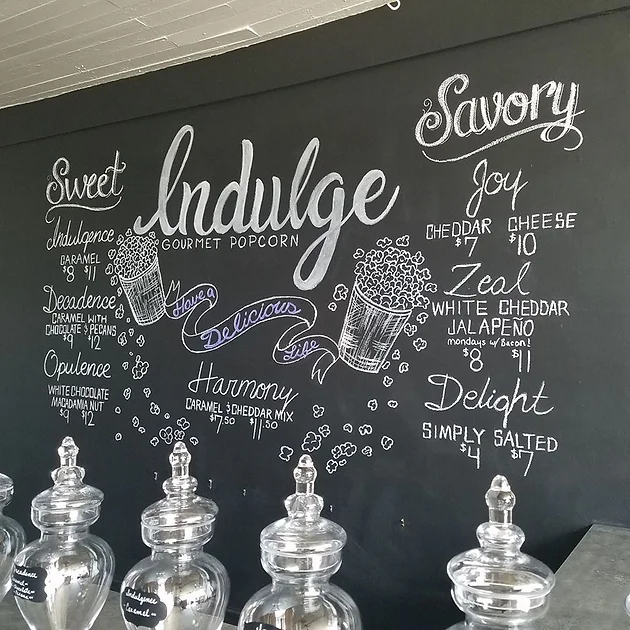 Sweet
Indulgence
CARAMEL
$8 $11
Decadence
CARAMEL WITH
CHOCOLATE & PECANS
$9 $12
Opulence
WHITE CHOCOLATE
MACADAMIA NUT
$9 $12
Indulge
GOURMET POPCORN
Have a
Delicious
Life
Harmony
CARAMEL & CHEDDAR MIX
$7.50 $11.50
Savory
Joy
CHEDDAR CHEESE
$7 $10
Zeal
WHITE CHEDDAR
JALAPEÑO
mondays w/ Bacon!
$8 $11
Delight
SIMPLY SALTED
$4 $7
Indulgence
Caramel